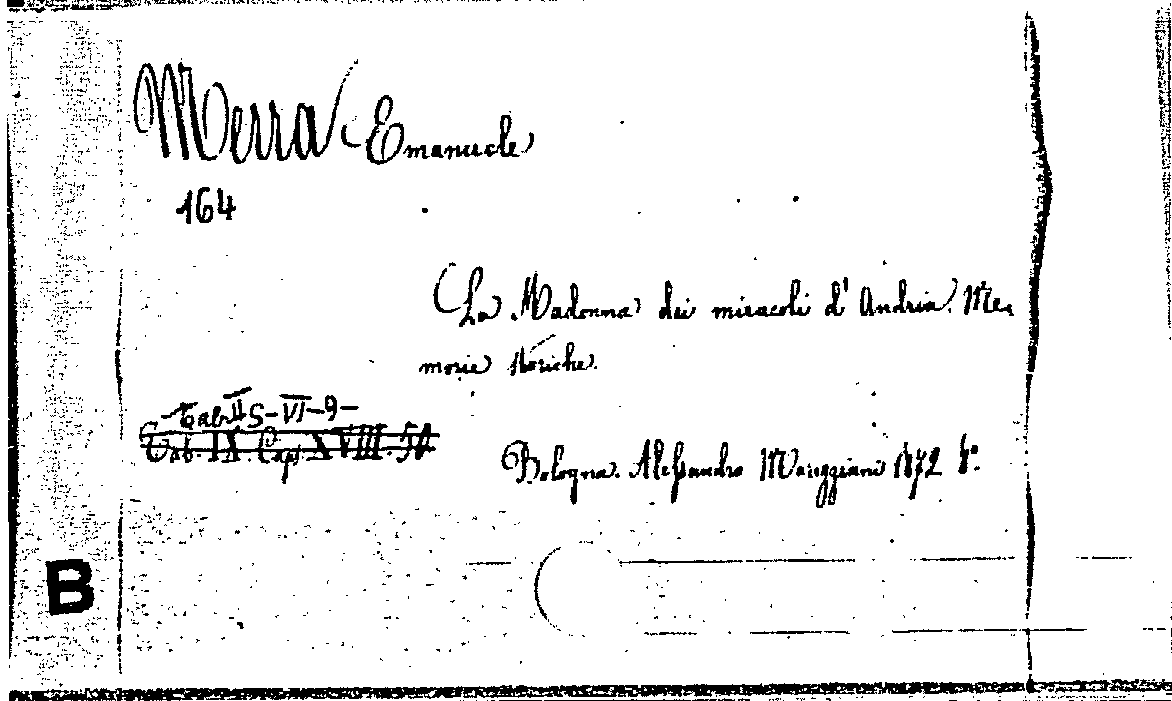 Merra Emanuele
164
La Madonna dei miracoli d'Andria. Me-
morie storiche.
Tab. II S-VI-9-
Cab. IX. Cap. XVIII. 50
Bologna. Alessandro Mareggiani 1872 8°.
B